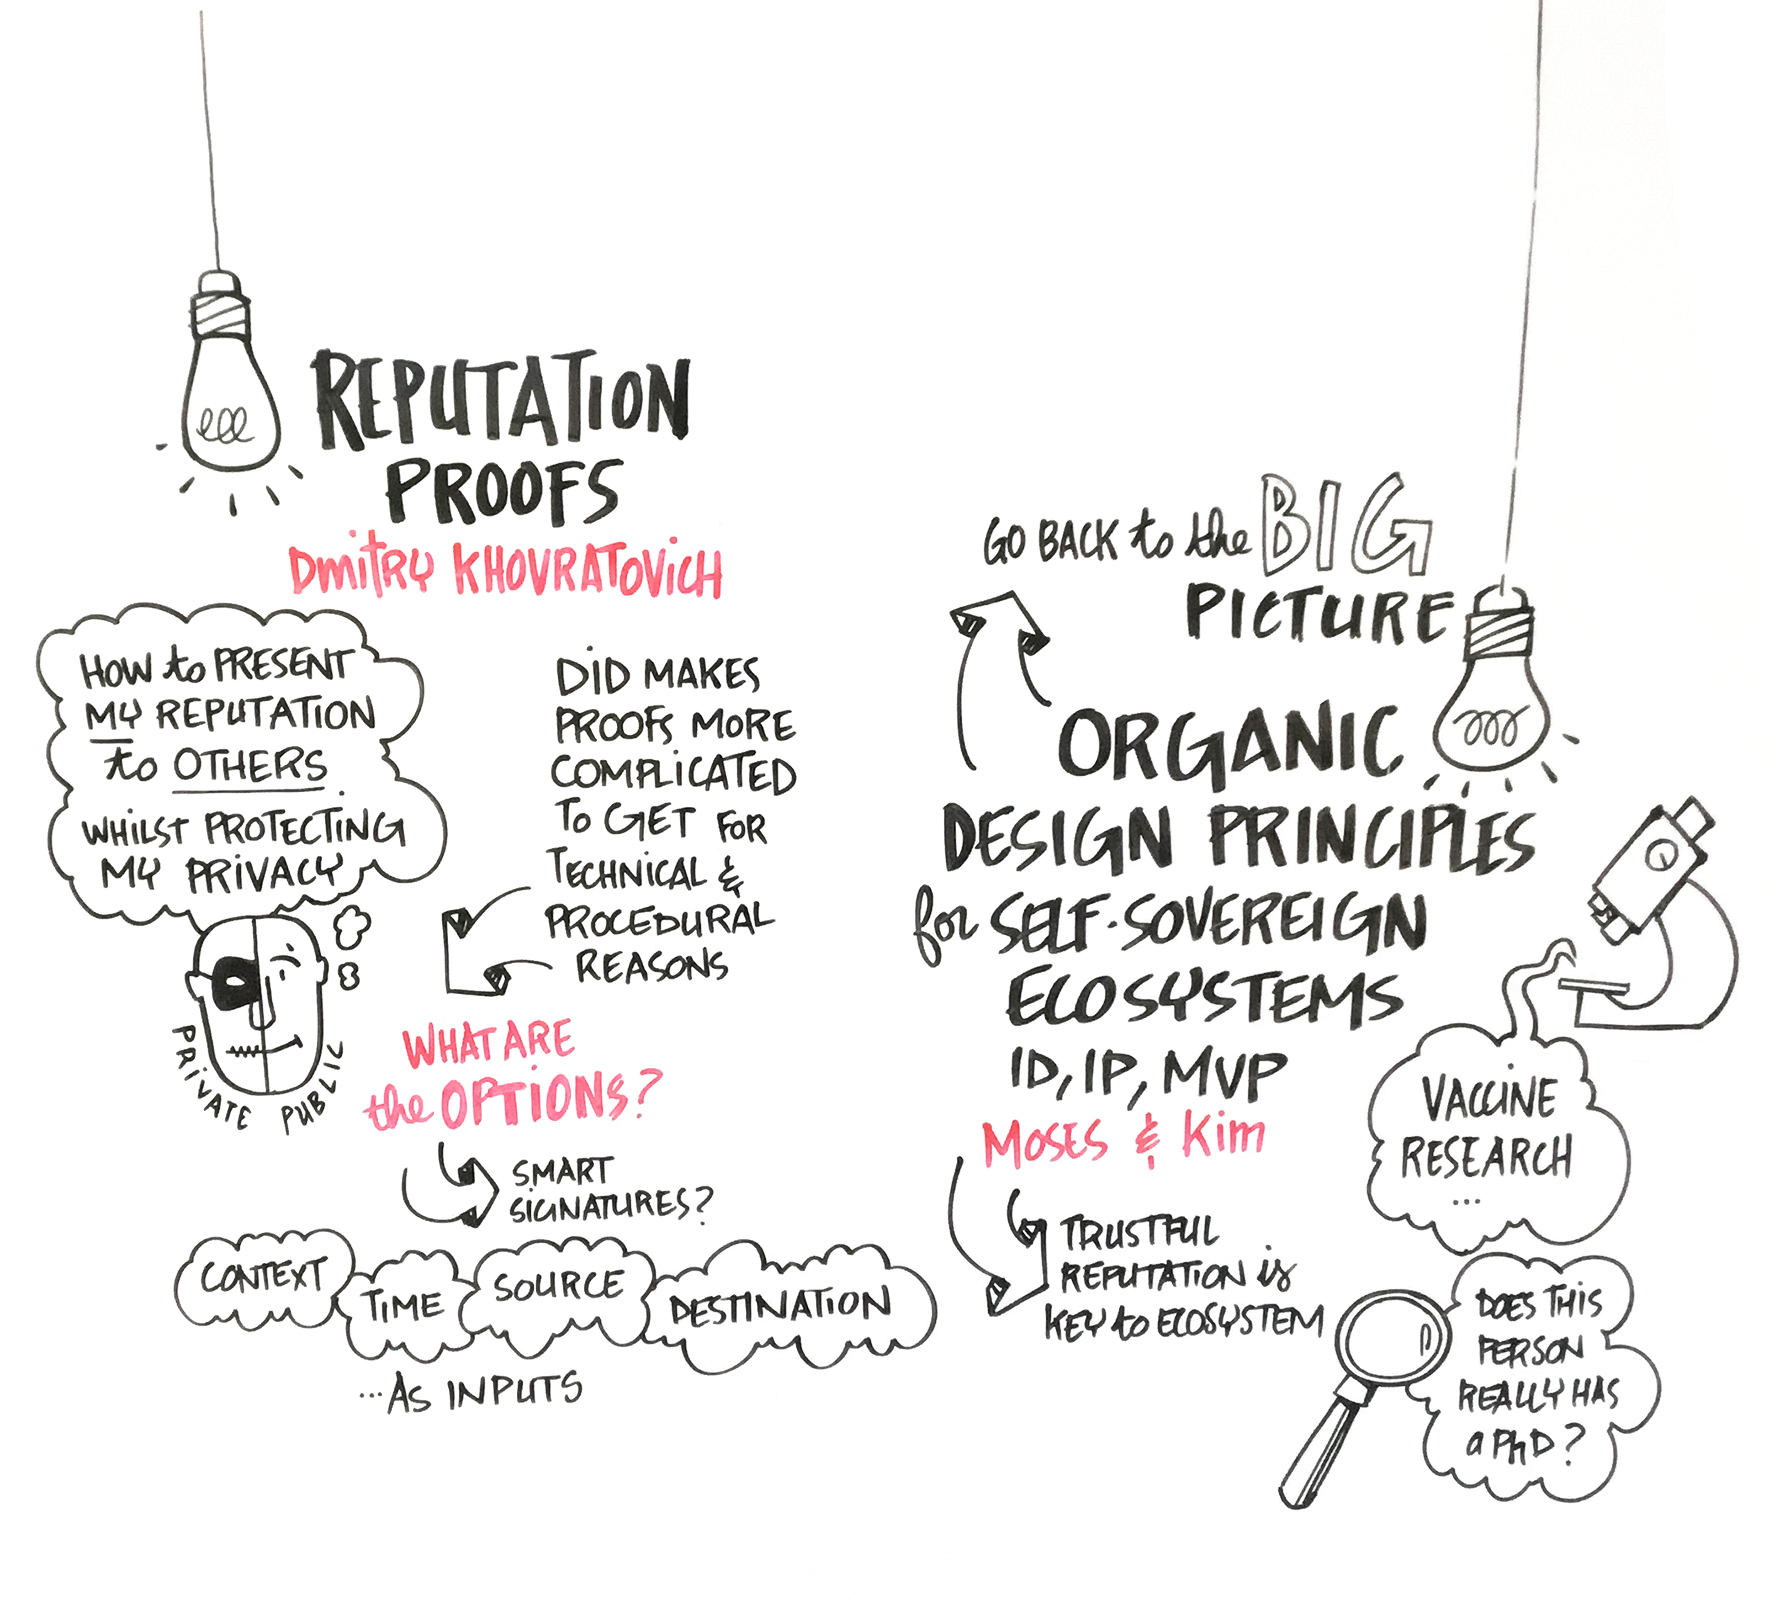 REPUTATION
PROOFS
Dmitry KHOVRATOVICH
HOW to PRESENT
MY REPUTATION
to OTHERS
WHILST PROTECTING
MY PRIVACY
PRIVATE PUBLIC
DID MAKES
PROOFS MORE
COMPLICATED
TO GET FOR
TECHNICAL &
PROCEDURAL
REASONS
WHAT ARE
the OPTIONS?
SMART
SIGNATURES?
CONTEXT
TIME
SOURCE
DESTINATION
...AS INPUTS
GO BACK to the BIG
PICTURE
ORGANIC
DESIGN PRINCIPLES
for SELF-SOVEREIGN
ECOSYSTEMS
ID, IP, MVP
MOSES & Kim
TRUSTFUL
REPUTATION is
KEY to ECOSYSTEM
VACCINE
RESEARCH
...
DOES THIS
PERSON
REALLY HAS
a PhD?